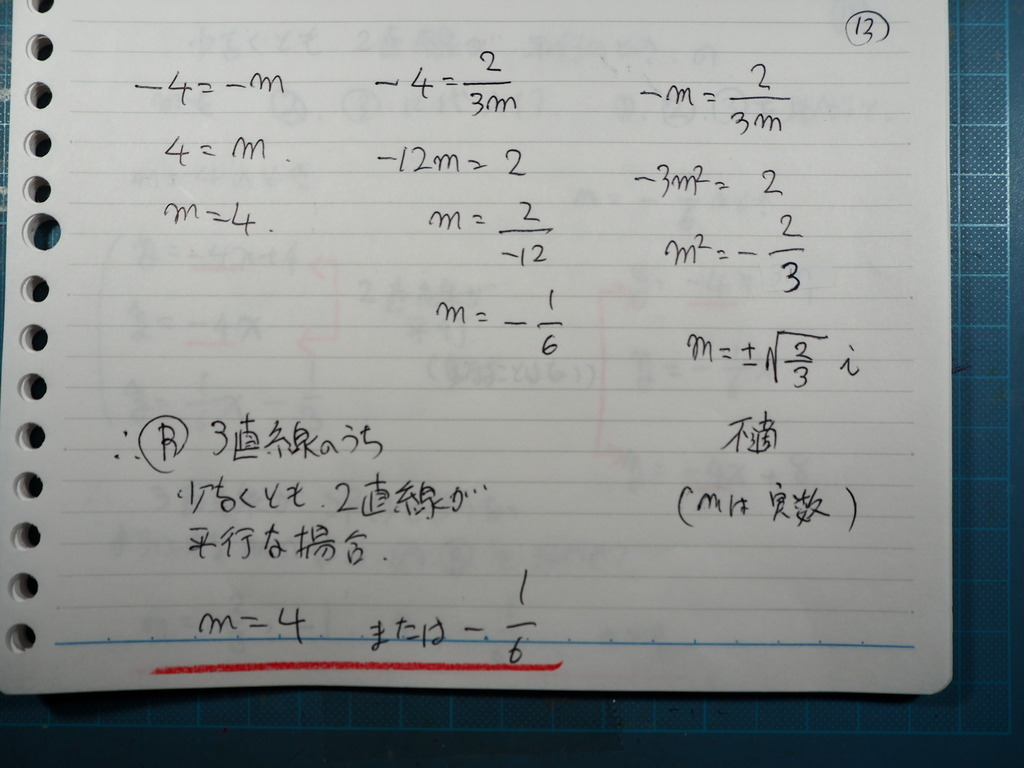 ⑬
-4=-m
4=m.
m=4.
-4=2/3m
-12m=2
m=2/-12
m=-1/6
-m=2/3m
-3m²=2
m²=-2/3
m=±√2/3 i
不適
(mは実数)
∴Ⓑ 3直線のうち
少なくとも.2直線が
平行な場合.
m=4 または -1/6